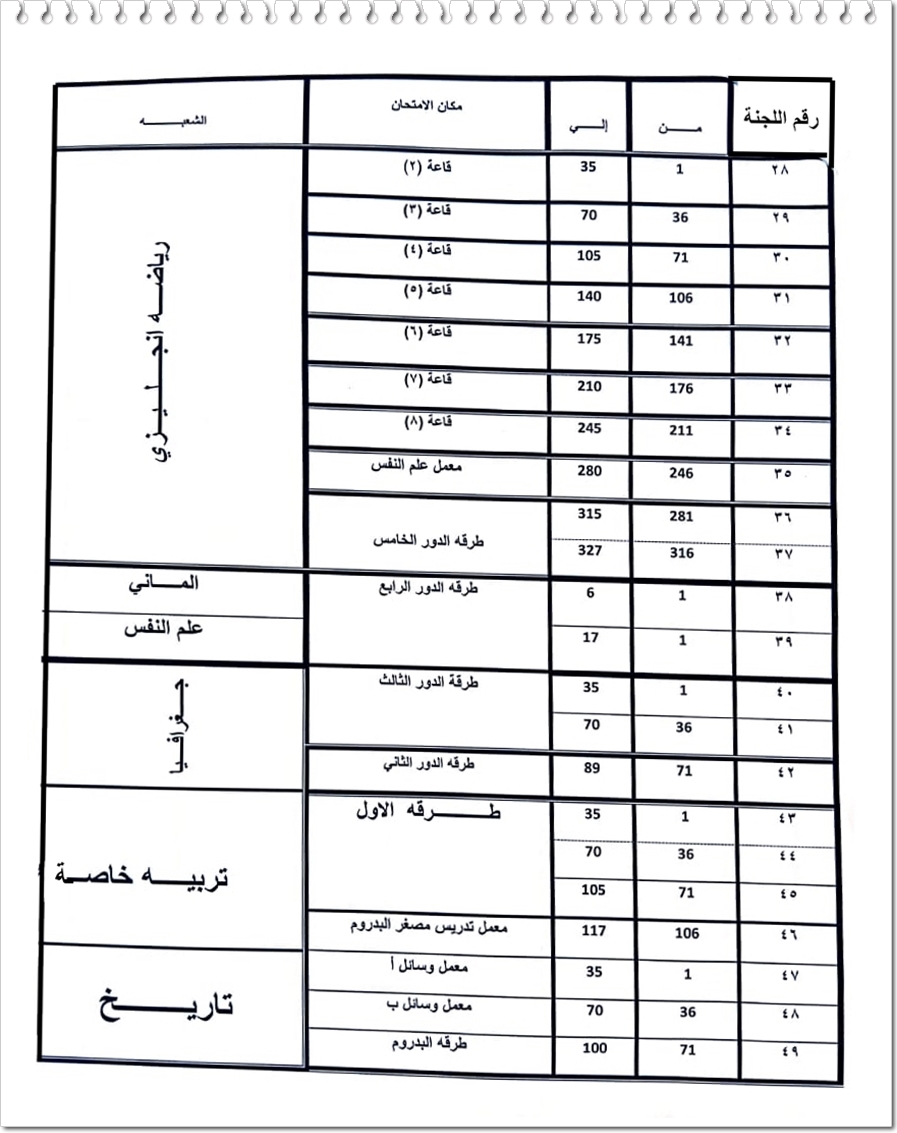 رقم اللجنة مـــن إلـــي مكان الامتحان الشعبـــــه
٢٨ 1 35 قاعة (٢)
٢٩ 36 70 قاعة (٣)
٣٠ 71 105 قاعة (٤)
٣١ 106 140 قاعة (٥)
٣٢ 141 175 قاعة (٦)
٣٣ 176 210 قاعة (٧)
٣٤ 211 245 قاعة (٨)
٣٥ 246 280 معمل علم النفس
٣٦ 281 315
٣٧ 316 327 طرقه الدور الخامس
رياضـــه انجـلـيـــزي
٣٨ 1 6 طرقه الدور الرابع المـــــاني
٣٩ 1 17 علم النفس
٤٠ 1 35 طرقة الدور الثالث
٤١ 36 70
٤٢ 71 89 طرقه الدور الثاني
جـغرافـيا
٤٣ 1 35 طـــــــرقه الاول
٤٤ 36 70
٤٥ 71 105
٤٦ 106 117 معمل تدريس مصغر البدروم
تربيـــه خاصــة
٤٧ 1 35 معمل وسائل أ
٤٨ 36 70 معمل وسائل ب
٤٩ 71 100 طرقه البدروم
تاريـــــــخ